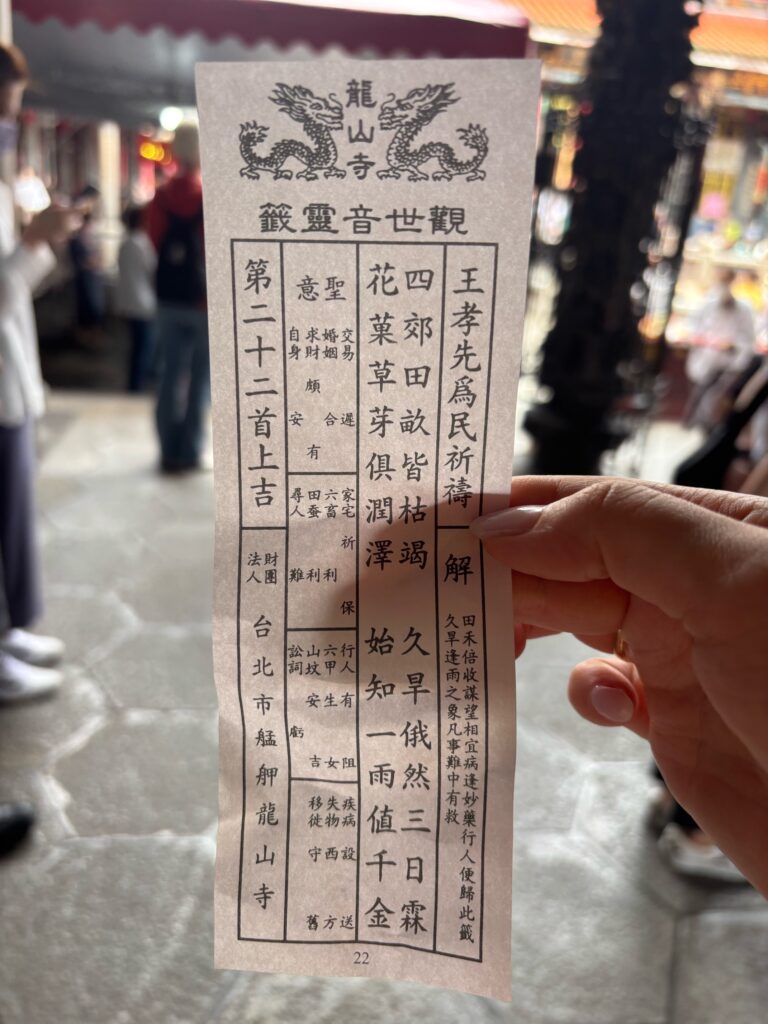 龍山寺
觀世音靈籤
王孝先爲民祈禱
解
田禾倍收謀望相宜病逢妙藥行人便歸此籤
久旱逢雨之象凡事難中有救
四郊田畝皆枯竭 久旱俄然三日霖
花菓草芽俱潤澤 始知一雨值千金
聖意
交易遲
婚姻合
求財頗有
自身安
家宅祈保
六畜利
田蚕利
尋人難
行人有阻
六甲生女
山坟安吉
訟詞虧
疾病設送
失物西方
移徙守舊
第二十二首上吉
財團法人
台北市艋舺龍山寺
22